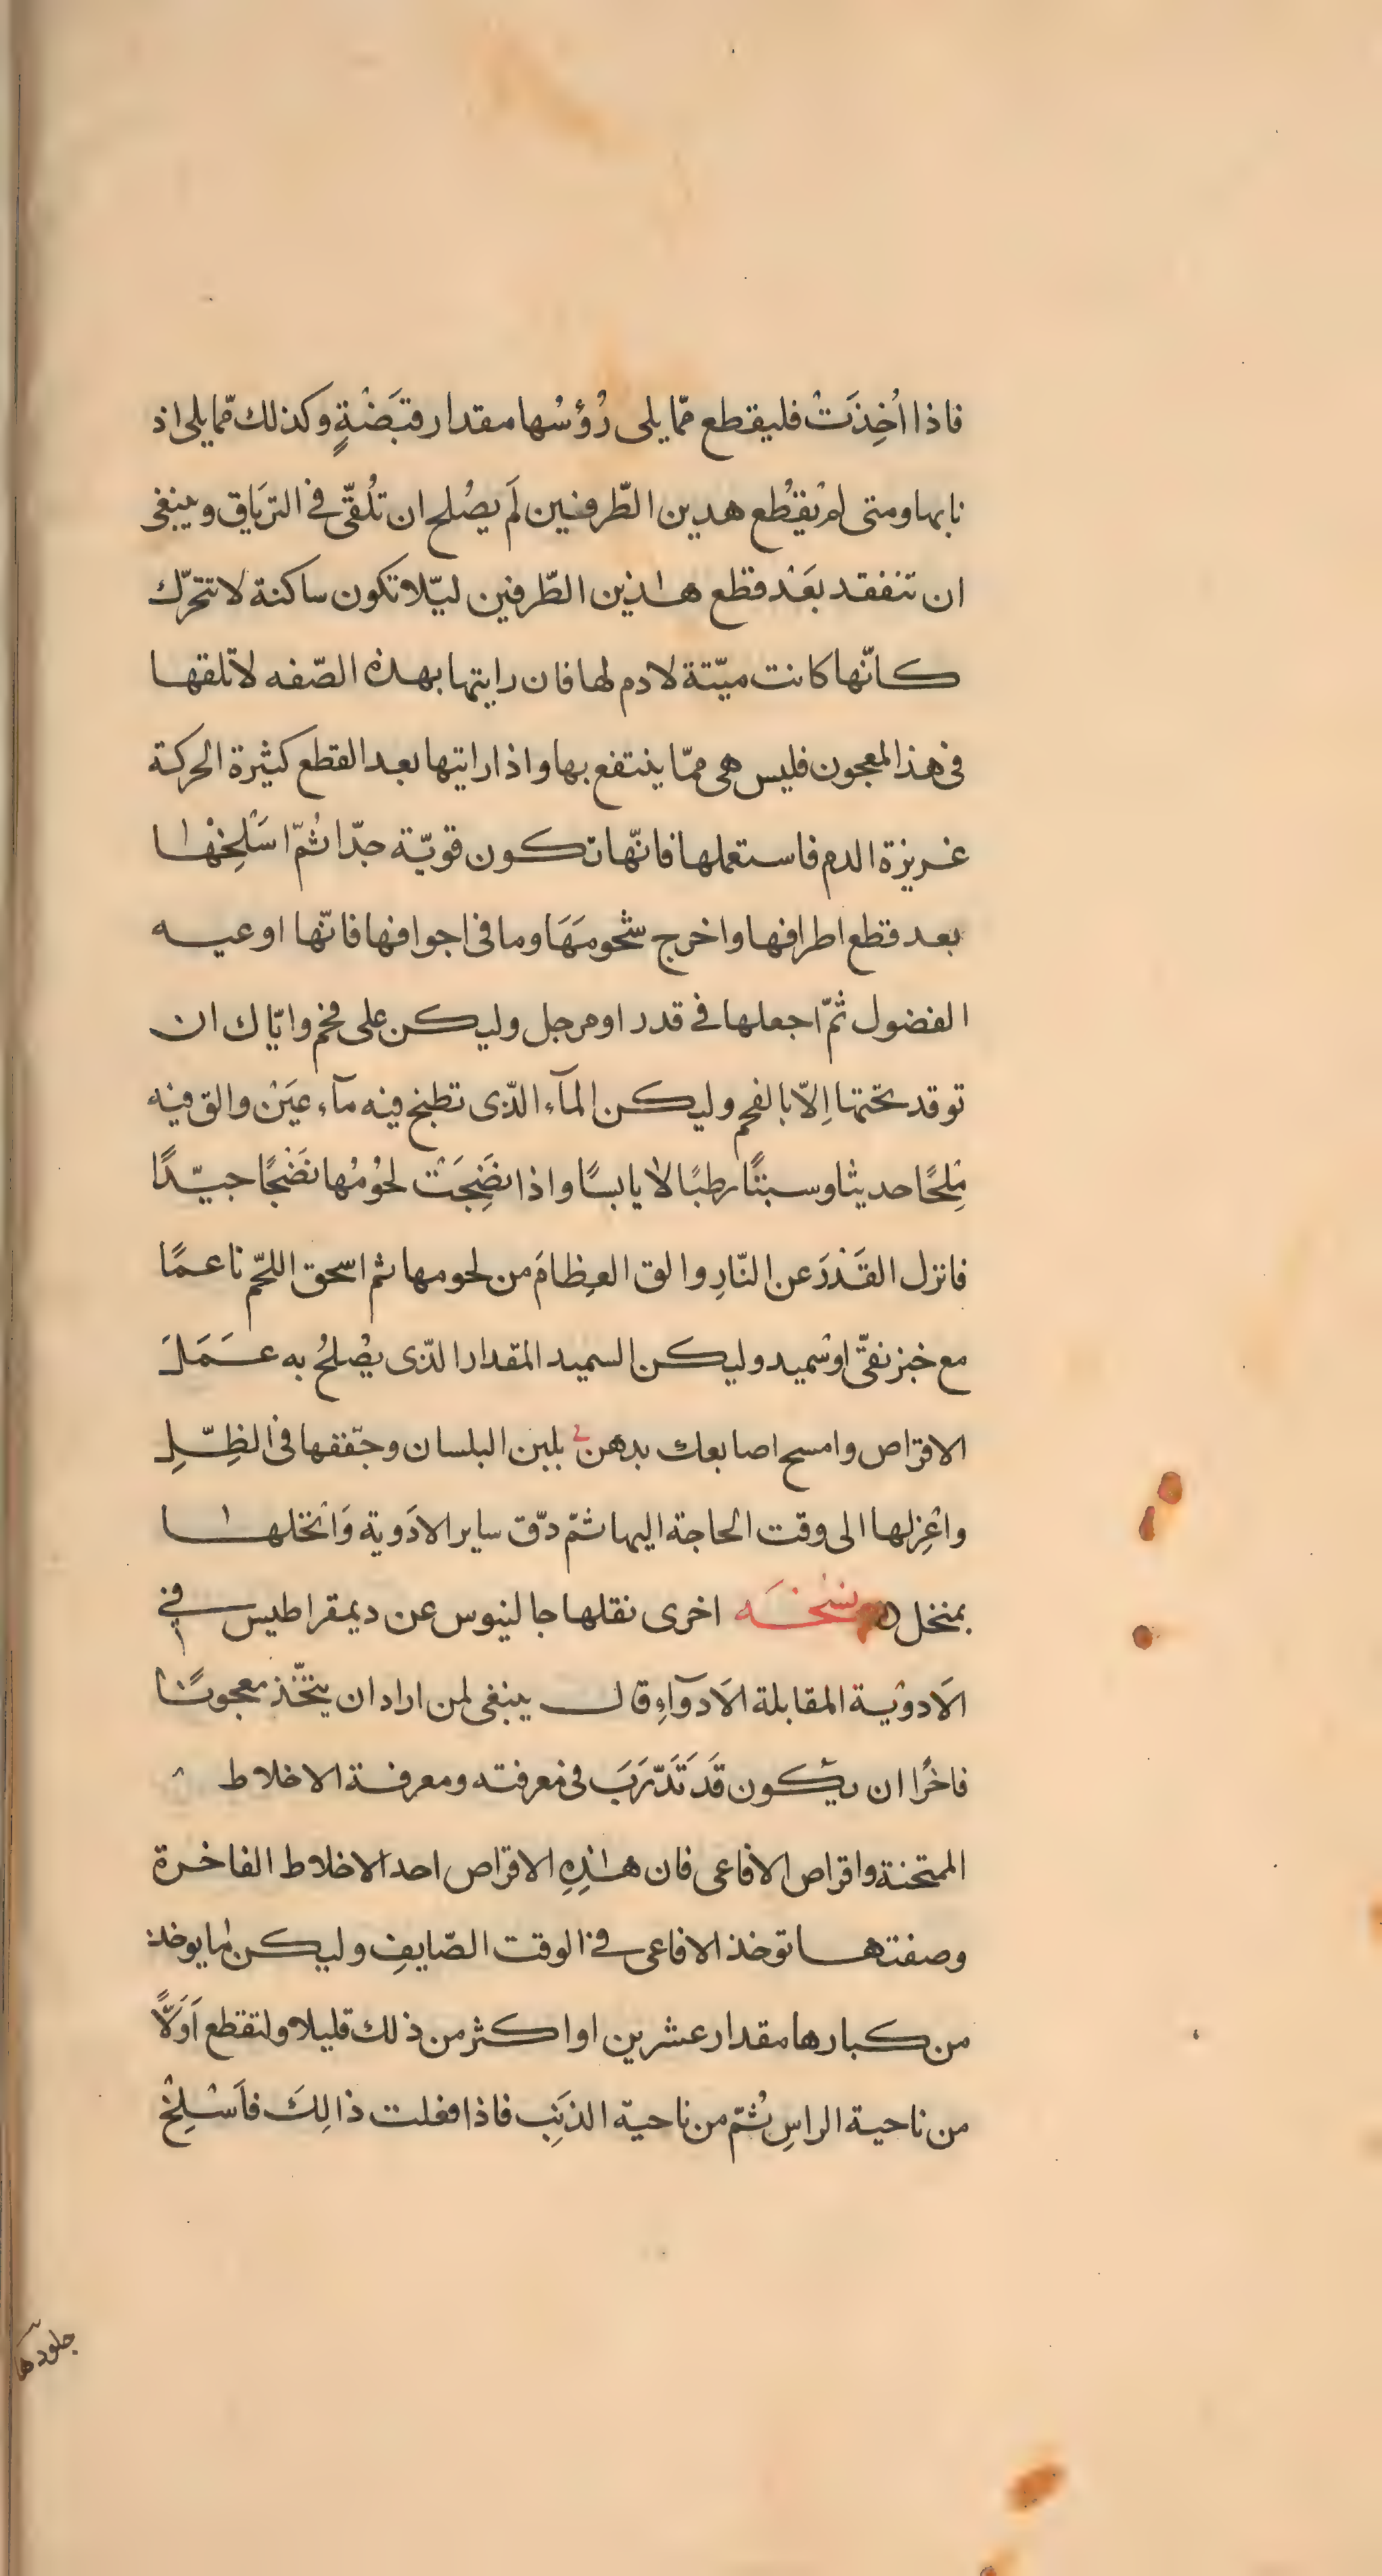 فاذا اُخِذَتْ فليقطع ممّا يلى رُؤسُها مقدار قبَضْةٍ وكذلك ممّا يلى اذ
نابها ومتى لم يقْطُع هدين الطّرفين لَم يصُلح ان تُلقّى فى الترَياق وينبغى
ان تنفقد بعَدْ قطع هٰذين الطّرفين ليّلا تكون ساكنة لا تتحرّك
كانّها كانت ميّتة لا دم لها فان رايتها بهذه الصّفه لا تلقها
فى هذا المعجون فليس هى ممّا ينتفع بها واذا رايتها بعد القطع كثيرة الحركة
غزيزة الدم فاستعملها فانّها تكون قويّة جدّا ثُمّ اسَلِخْها
بعد قطع اطرافها واخرج شحومَهَا وما فى اجوافها فانّها اوعيه
الفضول ثمّ اجعلها فى قدر او مرجل وليكن على فخم وايّاك ان
توقد تحتها اِلاّ بالفحم وليكن المآء الذّى تطبخ فيه مآء عيَنْ والق فيه
مِلحًا حديثا وسبتًا رطبًا لا يابسًا واذا نضَِجَتْ لحوُمُها نَضْجًا جيّدًا
فانزل القَدْرَ عن النّارِ والق العِظامَ من لحومها ثم اسحق اللحّم ناعمًا
مع خبز نقىّ او سميد وليكن السميد المقدار الذّى يصُلحُ به عَمَلَ
الاقراص وامسح اصابعك بدهن بلبن البلسان وجفّفها فى الظِلِّ
واعْزِلها الى وقت الحاجة اليها ثمّ دقّ ساير الادَوية وَانْخلها
بمنخل نسُخَه اخرى نقلها جالينوس عن ديمقراطيس فى
الاَدوْية المقابلة الاَدوآءِ قال ينبغى لمن اراد ان يتخّذ معجونًا
فاخرًا ان يكون قَد تَدَّرَبَ فى معرفته ومعرفة الاخلاط
الممتحنة واقراص الافاعى فان هٰذِهِ الاقراص احد الاخلاط الفاخرة
وصفتها توخذ الافاعى فى الوقت الصّايفِ وليكن ما يوخذ
من كبارها مقدار عشرين او اكثر من ذلك قليلا ولتقطع اَوَلاًّ
من ناحية الراسِ ثُمّ من ناحية الذنَبِ فاذا فعلت ذالِكَ فاَسْلِخْ
جلودها